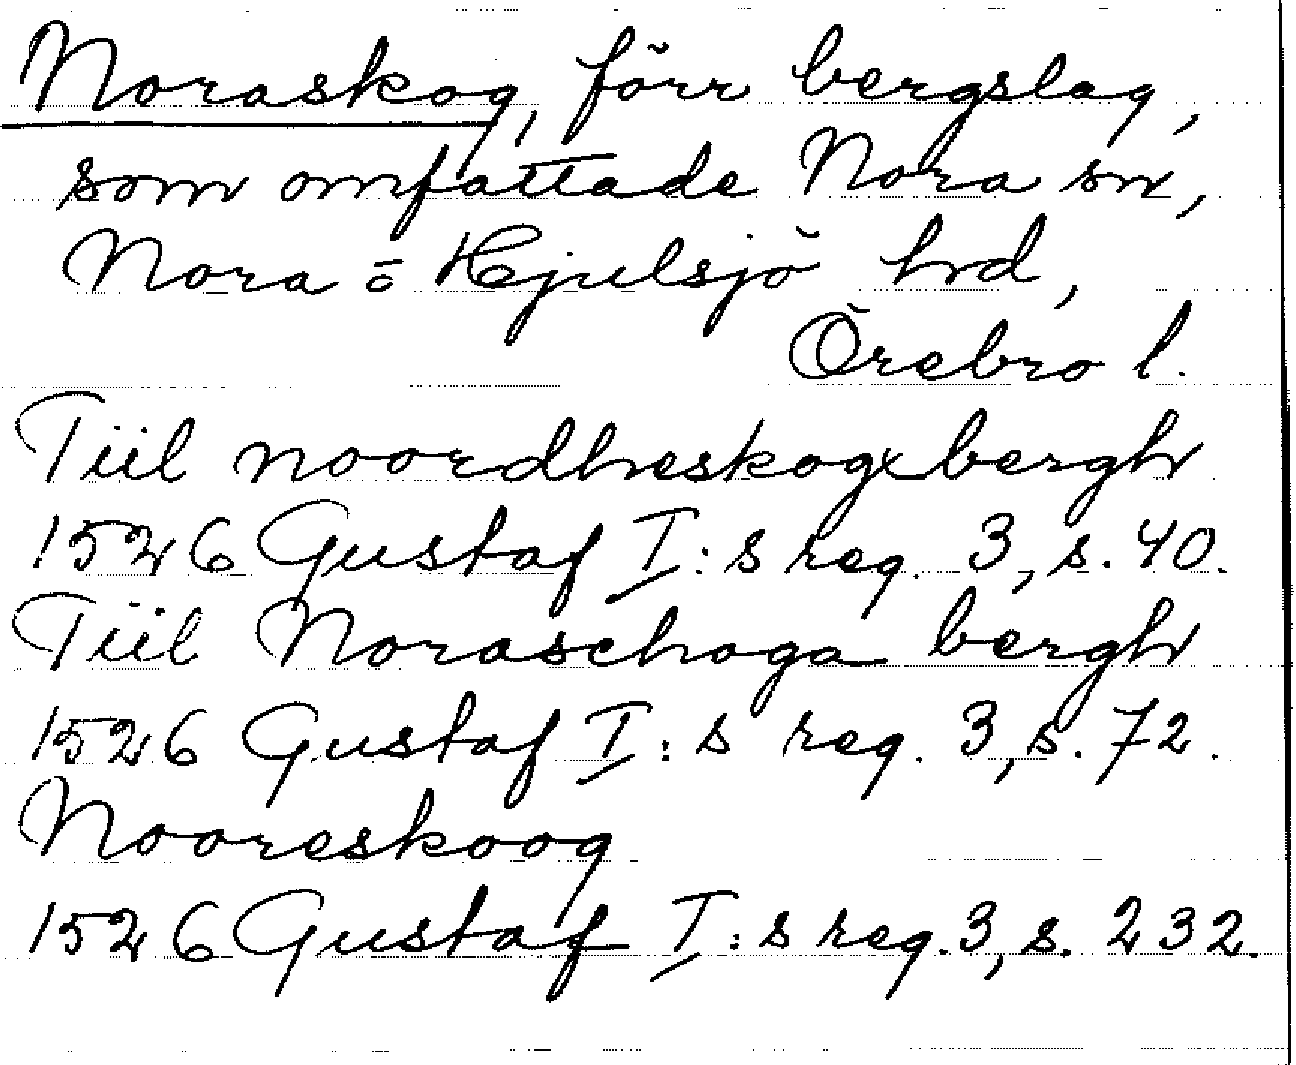 Noraskog, förr bergslag,
som omfattade Nora sn,
Nora o Hjulsjö hrd,
Örebro l.
Tiil noordheskogxbergh
1526 Gustaf I:s reg. 3, s. 40.
Tiil Noraschoga bergh
1526 Gustaf I:s reg. 3, s. 72.
Nooreskoog
1526 Gustaf I:s reg. 3, s. 232.